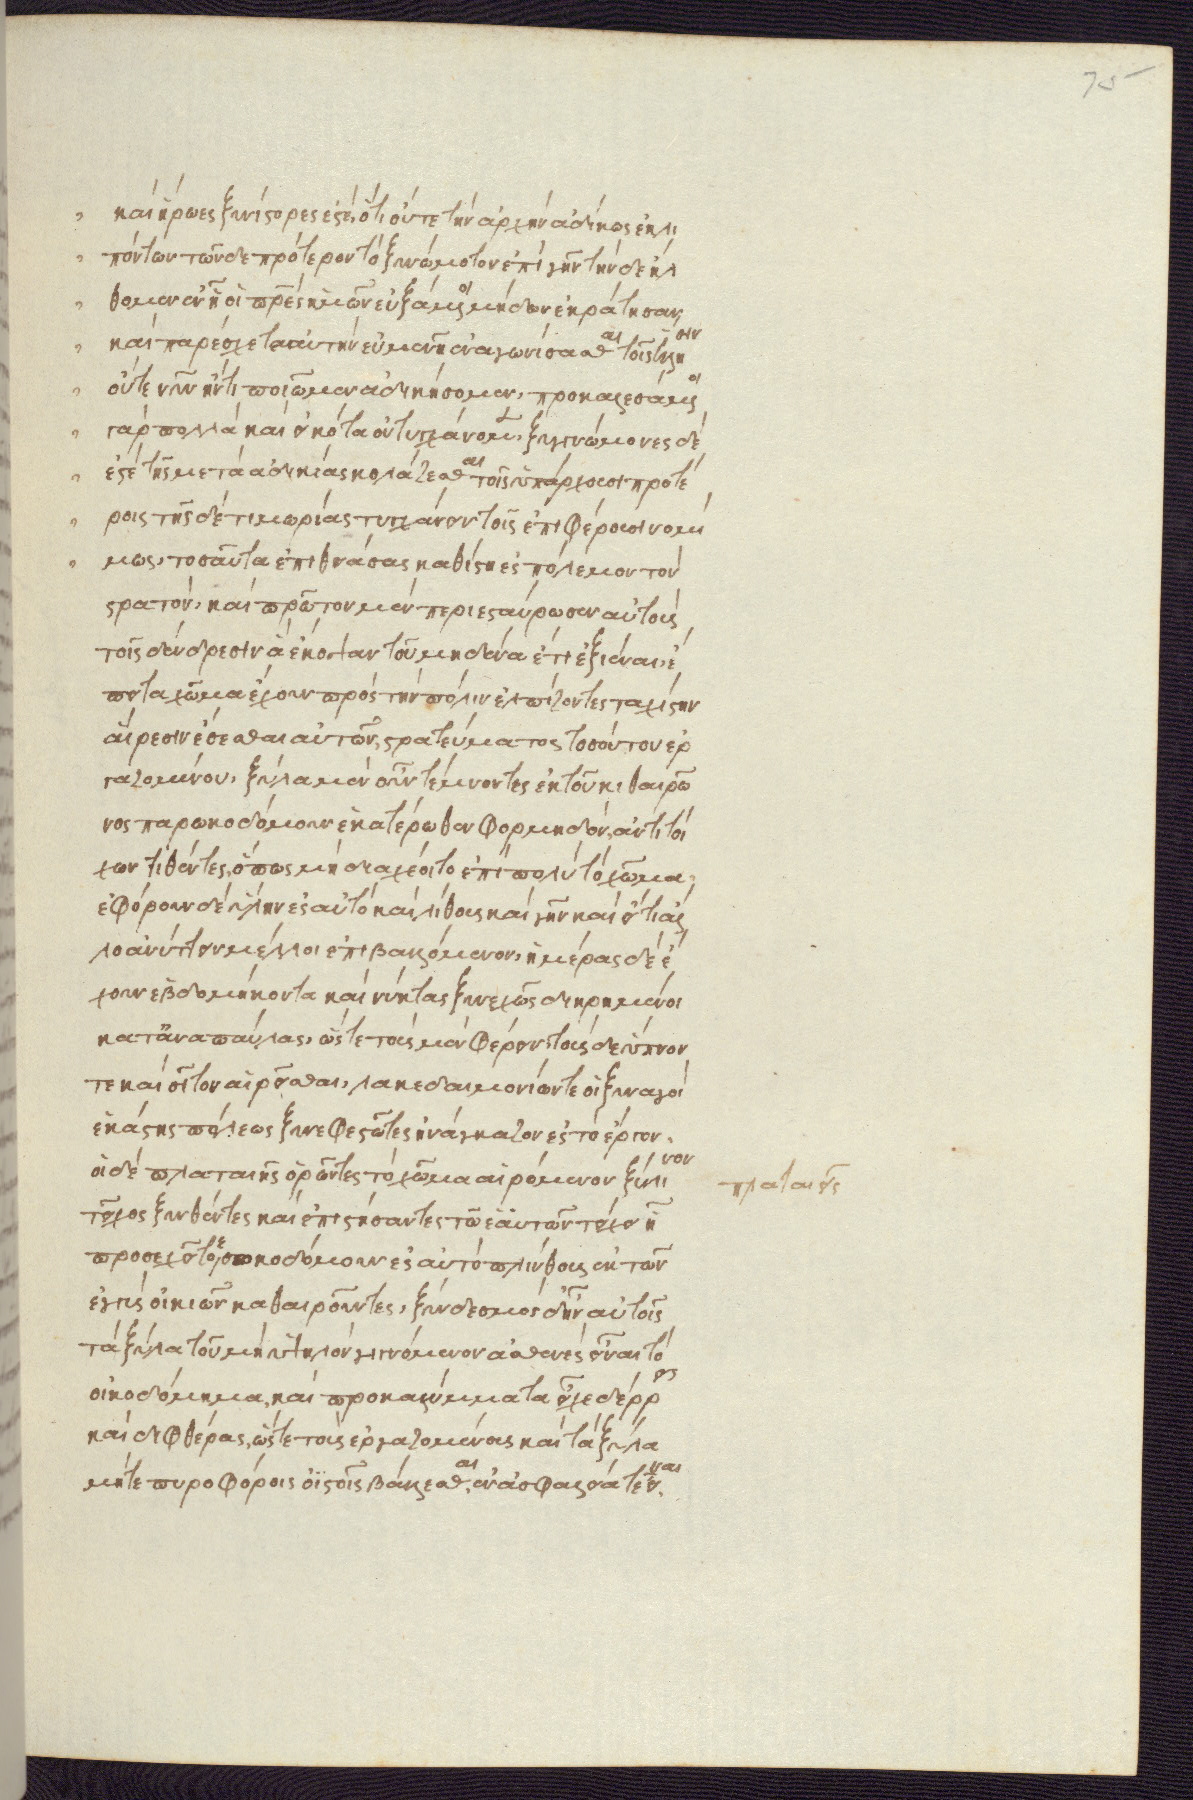 75
καὶ ἥρωες ξυνίστορες ἐστέ, ὅτι οὔτε τὴν ἀρχὴν ἀδίκως ἐκλι
πόντων τῶνδε πρότερον τὸ ξυνώμοτον ἐπὶ γῆν τήνδε ἤλ
θομεν ἐν ἧ οἱ πρες ἡμῶν εὐξάμενοι μήδων ἐκράτησαν,
καὶ παρέσχετε αὐτὴν εὐμενῆ ἐναγωνίσασθαι τοῖς ἕλλησιν
οὔτε νῦν ἤν τι ποιῶμεν ἀδικήσομεν, προκαλεσάμενοι
γὰρ πολλὰ καὶ εἰκότα οὐ τυγχάνομεν, ξυγγνώμονες δὲ
ἐστὲ τῆς μετὰ ἀδικίας κολάζεσθαι τοῖς ὑπάρχουσι προτέ
ροις τῆς δὲ τιμωρίας τυγχάνειν τοῖς ἐπιφέρουσι νομί
μως, τοσαῦτα ἐπιθειάσας καθίστη ἐς πόλεμον τὸν
στρατόν, καὶ πρῶτον μὲν περιεσταύρωσαν αὐτοὺς
τοῖς δένδρεσιν ἃ ἔκοψαν τοῦ μηδένα ἔτι ἐξιέναι, ἔ
πειτα χῶμα ἔχουν πρὸς τὴν πόλιν ἐλπίζοντες ταχίστην
αἵρεσιν ἔσεσθαι αὐτῶν, στρατεύματος τοσούτου ἐρ
γαζομένου, ξύλα μὲν οὖν τέμνοντες ἐκ τοῦ κιθαιρῶ
νος παρωκοδόμουν ἑκατέρωθεν φορμηδὸν, ἀντὶ τοί
χων τιθέντες, ὅπως μὴ διαχέοιτο ἐπὶ πολὺ τὸ χῶμα,
ἐφόρουν δὲ ὕλην ἐς αὐτὸ καὶ λίθους καὶ γῆν καὶ εἴ τι ἄλ
λο ἀνύτειν μέλλοι ἐπιβαλλόμενον, ἡμέρας δὲ ἔ
χουν ἑβδομήκοντα καὶ νύκτας ξυνεχῶς διηρημένοι
κατἀναπαύλας, ὥστε τοὺς μὲν φέρειν, τοὺς δὲ ὕπνον
τε καὶ σῖτον αἱρεῖσθαι, λακεδαιμονίων τε οἱ ξυναγοὶ
ἑκάστης πόλεως ξυνεφεστῶτες ἠνάγκαζον ἐς τὸ ἔργον,
οἱ δὲ πλαταιῆς ὁρῶντες τὸ χῶμα αἰρόμενον ξύλινον
πλαταιεῖς
τεῖχος ξυνθέντες καὶ ἐπιστήσαντες τῶ ἑαυτῶν τείχει ἧ
προσεχοῦτο, ἐσωκοδόμουν ἐς αὐτὸ πλίνθους ἐκ τῶν
ἐγγὺς οἰκιῶν καθαιροῦντες, ξύνδεσμος δ' ἦν αὐτοῖς
τὰ ξύλα τοῦ μὴ ὑψηλὸν γιγνόμενον ἀσθενὲς εἶναι τὸ
οἰκοδόμημα, καὶ προκαλύμματα εἶχε δέρρεις
καὶ διφθέρας, ὥστε τοὺς ἐργαζομένους καὶ τὰ ξύλα
μήτε πυροφόροις οἰστοῖς βάλλεσθαι, ἐν ἀσφαλεία τε εἶναι.